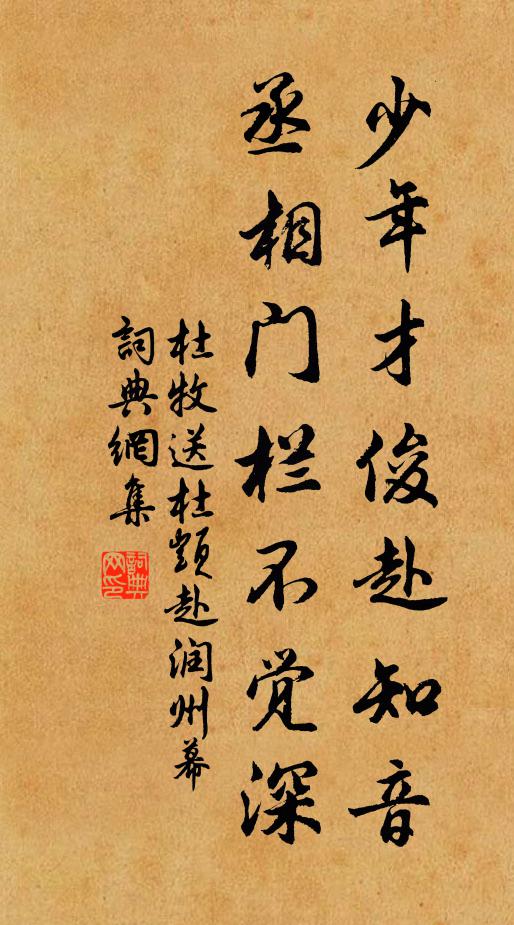 少年才俊赴知音
丞相门栏不觉深
杜牧送杜顗赴润州幕
詞典網集
詞典网印